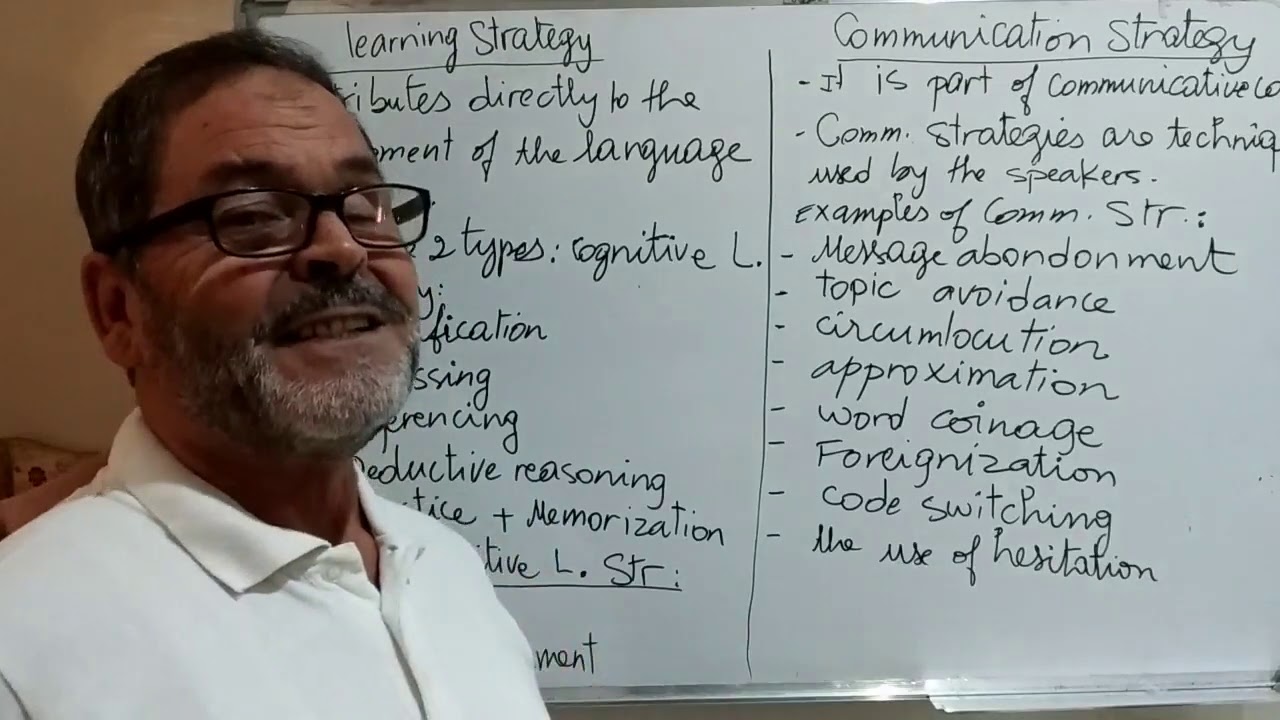 learning Strategy
ributes directly to the
ment of the language
2 types: cognitive L.
y:
fication
ssing
ferencing
Deductive reasoning
tice + Memorization
itive L. Str:
ment
Communication Strategy
- It is part of communicative co
- Comm. Strategies are techniq
used by the speakers.
Examples of Comm. Str.:
- Message abondonment
- topic avoidance
- circumlocution
- approximation
- word coinage
- Foreignization
- code switching
- the use of hesitation